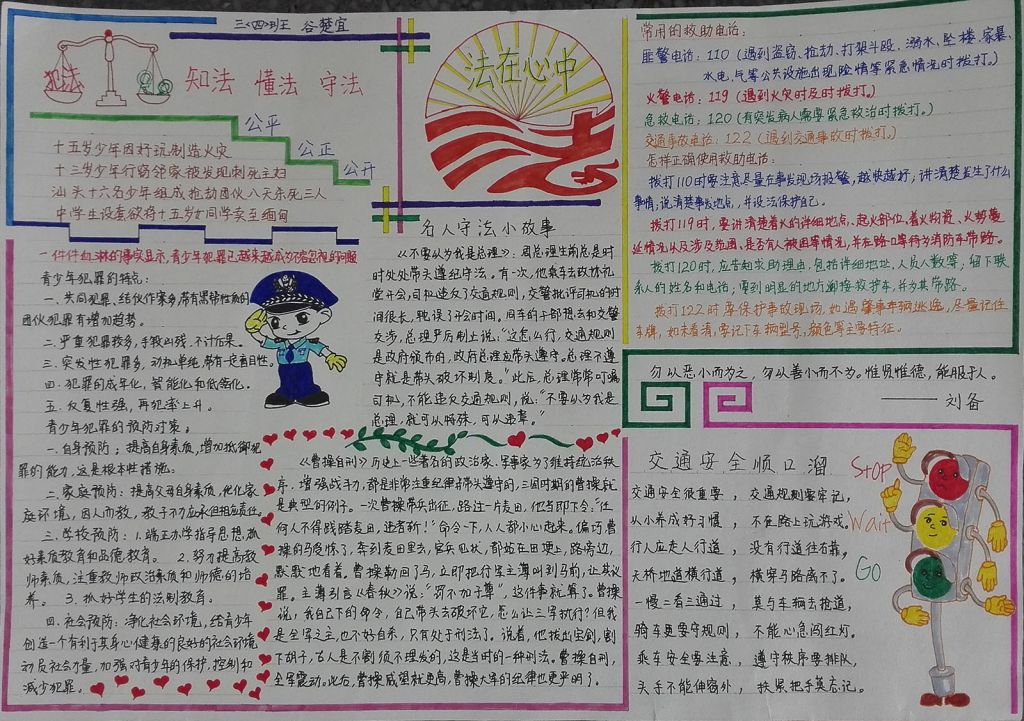 三<四>班 谷楚宜
犯法
知法 懂法 守法
公平
公正
公开
十五岁少年因好玩制造火灾
十三岁少年行窃邻家被发现刺死主妇
汕头十六名少年组成抢劫团伙八天杀死三人
中学生设套欲将十五岁女同学卖至缅甸
一件件血淋的事实显示,青少年犯罪已越来越成为不容忽视的问题
青少年犯罪的特点:
一.共同犯罪、结伙作案多,带有黑帮性质的
团伙犯罪有增加趋势。
二.严重犯罪较多,手段凶残、不计后果。
三.突发性犯罪多,动机单纯,带有一定盲目性。
四.犯罪的成年化、智能化和低龄化。
五.反复性强,再犯率上升。
青少年犯罪的预防对策。
一.自身预防:提高自身素质,增加抵御犯
罪的能力,这是根本性措施。
二.家庭预防:提高父母自身素质,优化家
庭环境,因人而教,教子不力应承但相应责任。
三.学校预防:1.端正办学指导思想,抓
好素质教育和品德教育。 2.努力提高教
师素质,注重教师政治素质和师德的培
养。 3.抓好学生的法制教育。
四.社会预防:净化社会环境,给青少年
创造一个有利于其身心健康的良好的社会环境
动员社会力量,加强对青少年的保护、控制和
减少犯罪。
法在心中
名人守法小故事
《不要以为我是总理》:周总理生前总是时
时处处带头遵纪守法。有一次,他乘车去政协礼
堂开会,司机违反了交通规则,交警批评司机的时
间很长,耽误了开会时间。同车的干部想去和交警
交涉,总理严厉制止说:"这怎么行,交通规则
是政府颁布的,政府总理应带头遵守。总理不遵
守就是带头破坏制度。"此后,总理常常叮嘱
司机,不能违反交通规则,说:"不要以为我是
总理,就可以特殊,可以违章。"
《曹操自刑》历史上一些著名的政治家、军事家为了维持统治秩
序,增强战斗力,都是非常注重纪律并带头遵守的,三国时期的曹操就
是典型的例子。一次曹操带兵出征,路过一片麦田,他当即下令:"任
何人不得践踏麦田,违者斩!"命令一下,人人都小心起来。偏巧曹
操的马受惊了,奔到麦田里去,官兵见状,都站在田埂上,路旁边,
默默地看着。曹操勒回了马,立即把行军主薄叫到马前,让其议
罪。主薄引言《春秋》说:"罚不加于尊",这件事就算了。曹操
说,我自己下的命令,自己带头去破坏它,怎么让三军执行?但我
是全军之主,也不好自杀,只有处于刑法了。说着,他拔出宝剑,割
下胡子,古人是不割须不理发的,这是当时的一种刑法。曹操自刑,
全军震动。此后,曹操威望就更高,曹操大军的纪律也更严明了。
常用的救助电话:
匪警电话:110(遇到盗窃、抢劫、打架斗殴、溺水、坠楼、家暴、
水电、气等公共设施出现险情等紧急情况时拨打。)
火警电话:119(遇到火灾时及时拨打。)
急救电话:120(有突发病人需要紧急救治时拨打。)
交通事故电话:122(遇到交通事故时拨打。)
怎样正确使用救助电话:
拨打110时要注意尽量在事发现场报警,越快越好;讲清楚发生了什么
事情;说清楚事发地点,并设法保护自己。
拨打119时,要讲清楚着火的详细地点、起火部位、着火物资、火势蔓
延情况以及涉及范围,是否有人被困等情况,并在路口等待为消防车带路。
拨打120时,应告知求助理由,包括详细地址,人员人数等;留下联
系人的姓名和电话;要到明显的地方迎接救护车,并为其带路。
拨打122时要保护事故现场,如遇肇事车辆逃逸,尽量记住
车牌,如未看清,要记下车辆型号,颜色等主要特征。
勿以恶小而为之,勿以善小而不为。惟贤惟德,能服于人。
——刘备
交通安全顺口溜
交通安全很重要,交通规则要牢记,
从小养成好习惯,不在路上玩游戏。
行人应走人行道,没有行道往右靠,
天桥地道横行道,横穿马路离不了。
一慢二看三通过,莫与车辆去抢道,
骑车更要守规则,不能心急闯红灯。
乘车安全要注意,遵守秩序要排队,
头手不能伸窗外,扶紧把手莫忘记。
Stop
Wait
Go